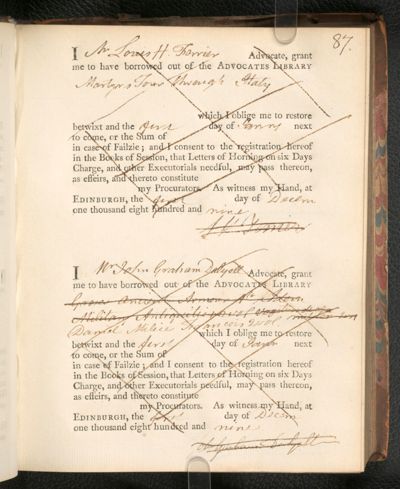 87.
I Mr Louis H. Ferrier Advocate, grant
me to have borrowed out of the ADVOCATES LIBRARY
Martyn's Tour through Italy
which I oblige me to restore
betwixt and the first day of Janry next
to come, or the Sum of
in case of Failzie; and I consent to the registration hereof
in the Books of Session, that Letters of Horning on six Days
Charge, and other Executorials needful, may pass thereon,
as effeirs, and thereto constitute
my Procurators. As witness my Hand, at
EDINBURGH, the first day of Decem
one thousand eight hundred and nine
Ferrier
I Mr John Graham Dalyell Advocate, grant
me to have borrowed out of the ADVOCATES LIBRARY
Grose Ancient Armour
Military Antiquities
Daniel Milice Francois
which I oblige me to restore
betwixt and the first day of Janry next
to come, or the Sum of
in case of Failzie; and I consent to the registration hereof
in the Books of Session, that Letters of Horning on six Days
Charge, and other Executorials needful, may pass thereon,
as effeirs, and thereto constitute
my Procurators. As witness my Hand, at
EDINBURGH, the day of Decem
one thousand eight hundred and nine
J Graham Dalyell